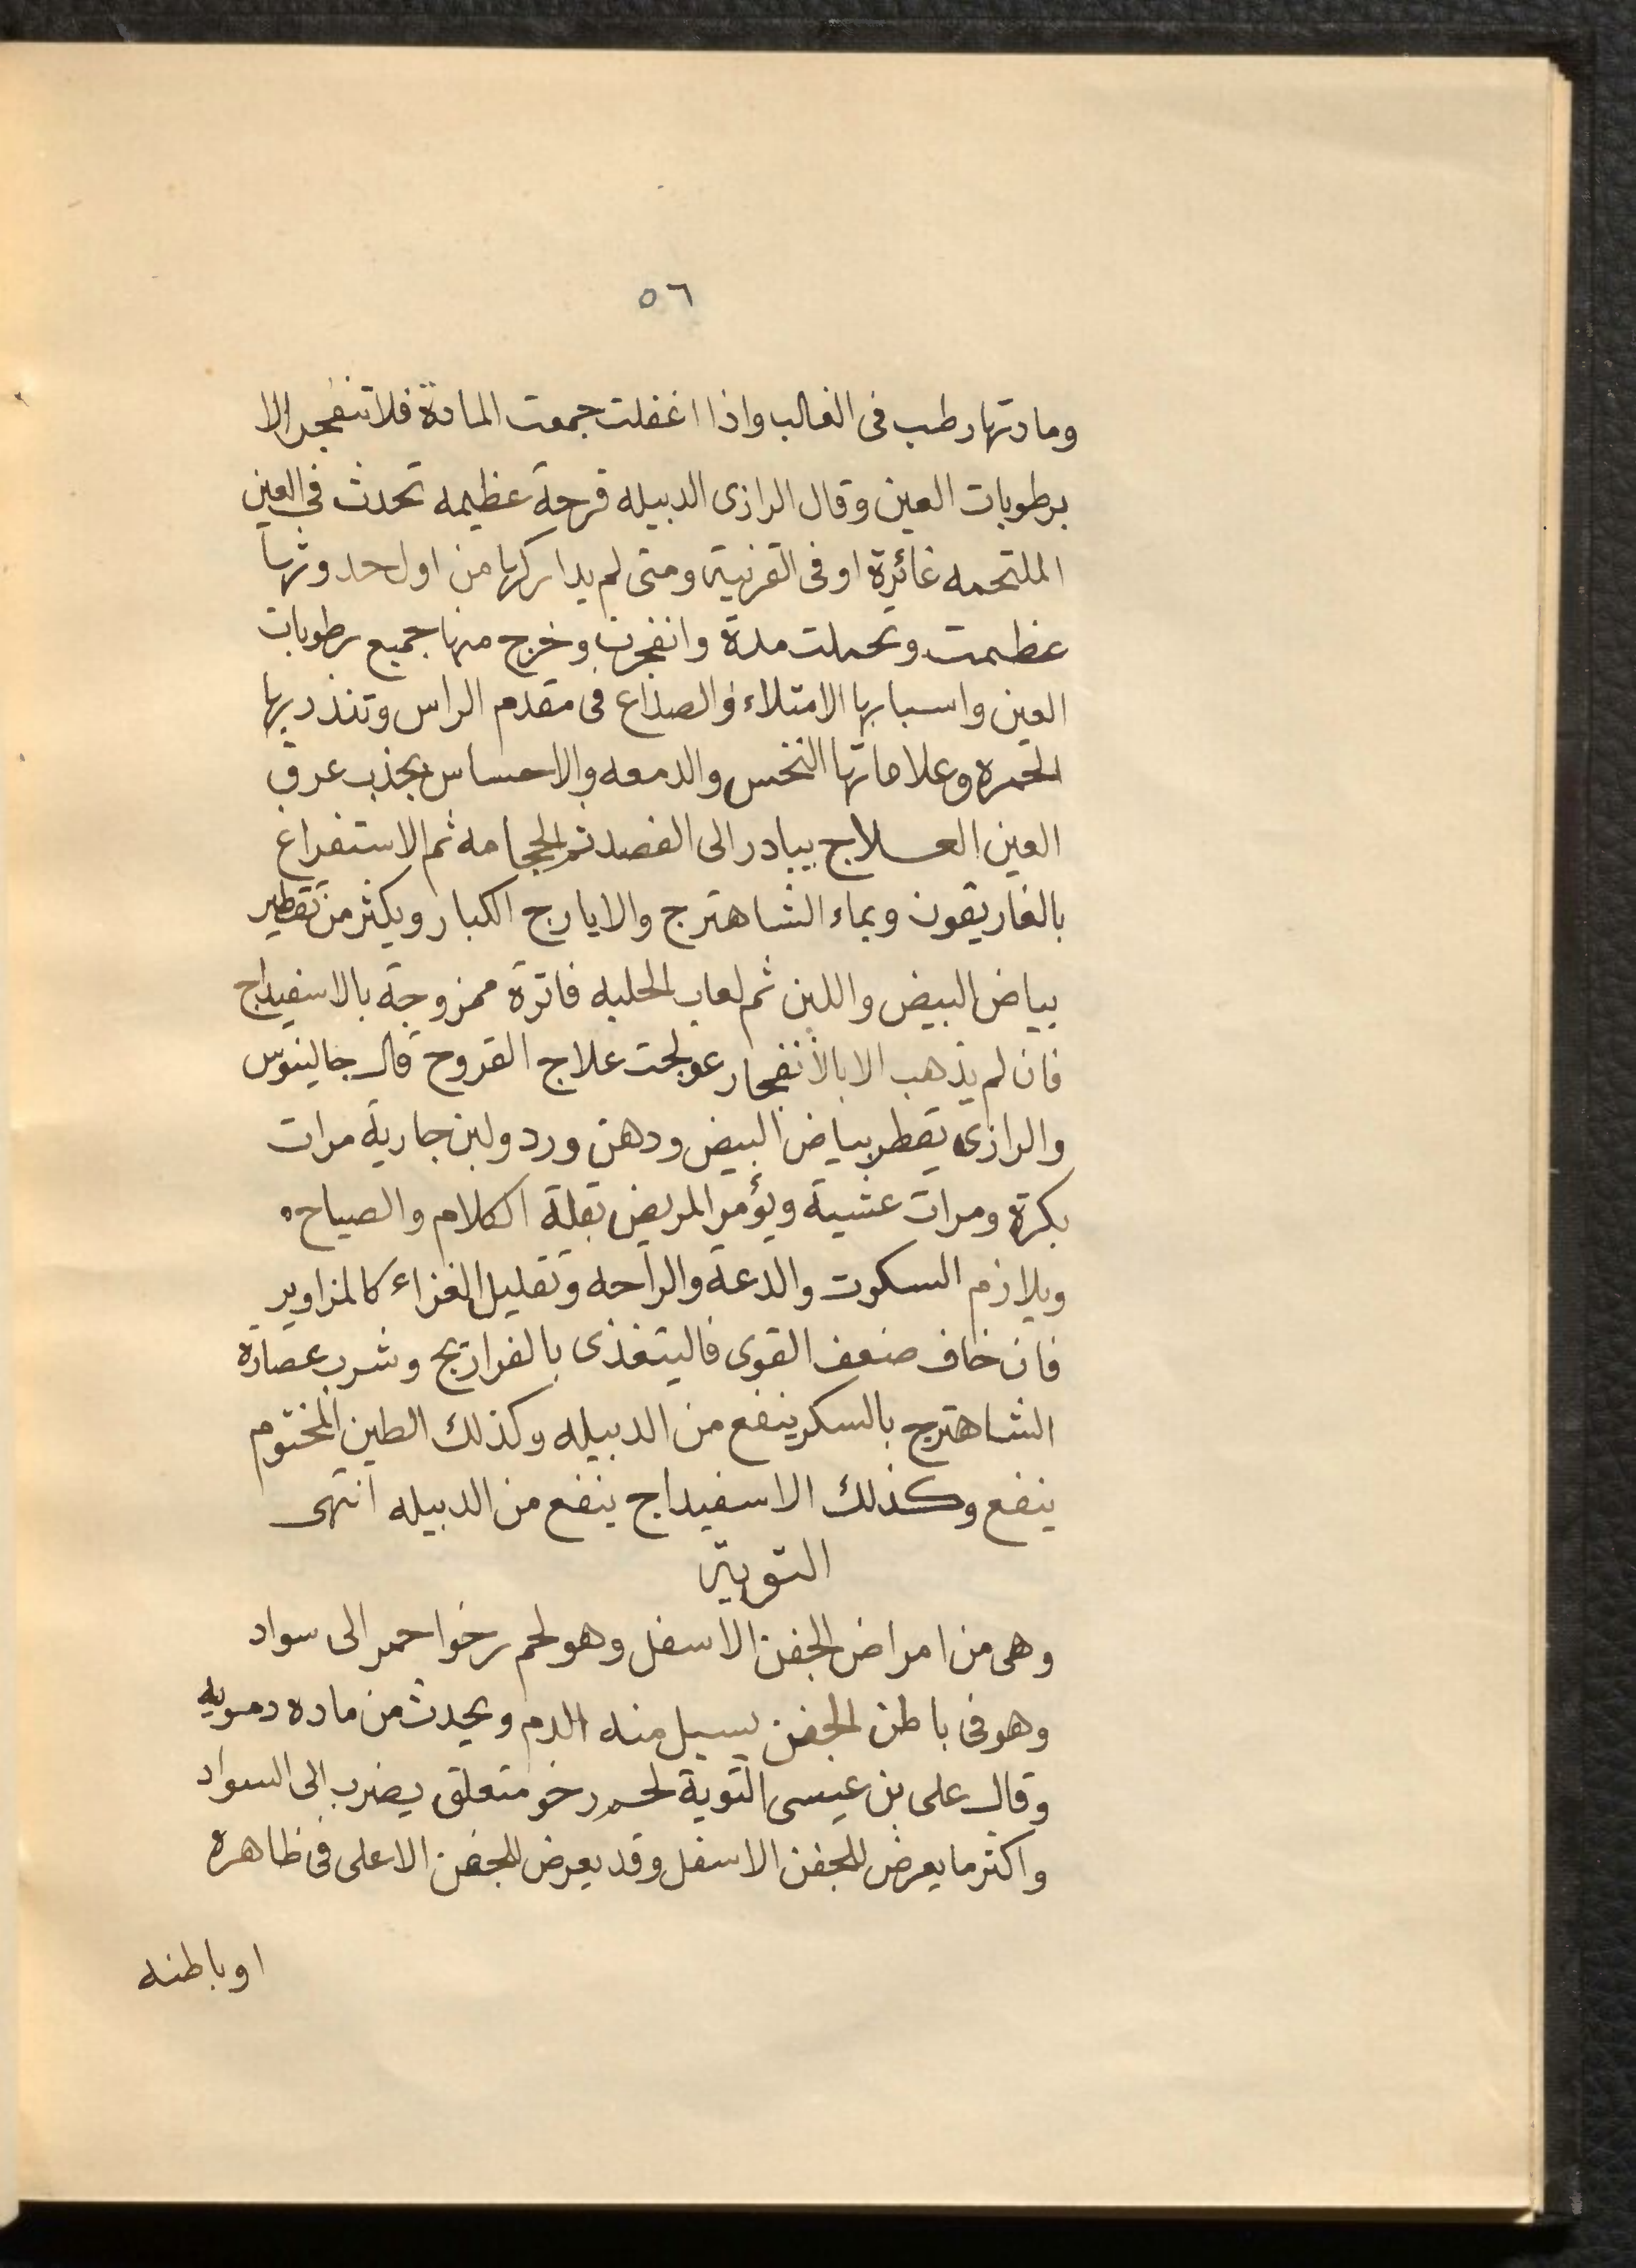 ٥٦
ومادتها رطب فى الغالب واذا اغفلت جمعت المادة فلا تنفجر الا
برطوبات العين وقال الرازى الدبيله قرحة عظيمه تحدث فى العين
الملتحمه غائرة او فى القرنية ومتى لم يداركها من اول حدوثها
عظمت وتحملت مدة وانفجرت وخرج منها جميع رطوبات
العين واسبابها الامتلاء والصداع فى مقدم الراس وتنذر بها
الحمره وعلاماتها النخس والدمعه والاحساس بجذب عرق
العين العلاج يبادر الى الفصد ثم الحجامه ثم الاستفراغ
بالغاريقون وبماء الشاهترج والايارج الكبار ويكثر من تقطير
بياض البيض واللبن ثم لعاب الحلبه فاترة ممزوجة بالاسفيداج
فان لم يذهب الا بالانفجار عولجت علاج القروح قال جالينوس
والرازى يقطر بياض البيض ودهن ورد ولبن جارية مرات
بكرة ومرات عشية ويؤمر المريض بقلة الكلام والصياح
ويلازم السكوت والدعة والراحه وتقليل الغزاء كالمزاوير
فان خاف ضعف القوى فاليتغذى بالفراريج وشرب عصارة
الشاهترج بالسكر ينفع من الدبيله وكذلك الطين المختوم
ينفع وكذلك الاسفيداج ينفع من الدبيله انتهى
التوتة
وهى من امراض الجفن الاسفل وهو لحم رخو احمر الى سواد
وهو فى باطن الجفن يسيل منه الدم ويحدث من ماده دمويه
وقال على بن عيسى التوية لحم رخو متعلق يضرب الى السواد
واكثر ما يعرض للجفن الاسفل وقد يعرض للجفن الاعلى فى ظاهره
او باطنه